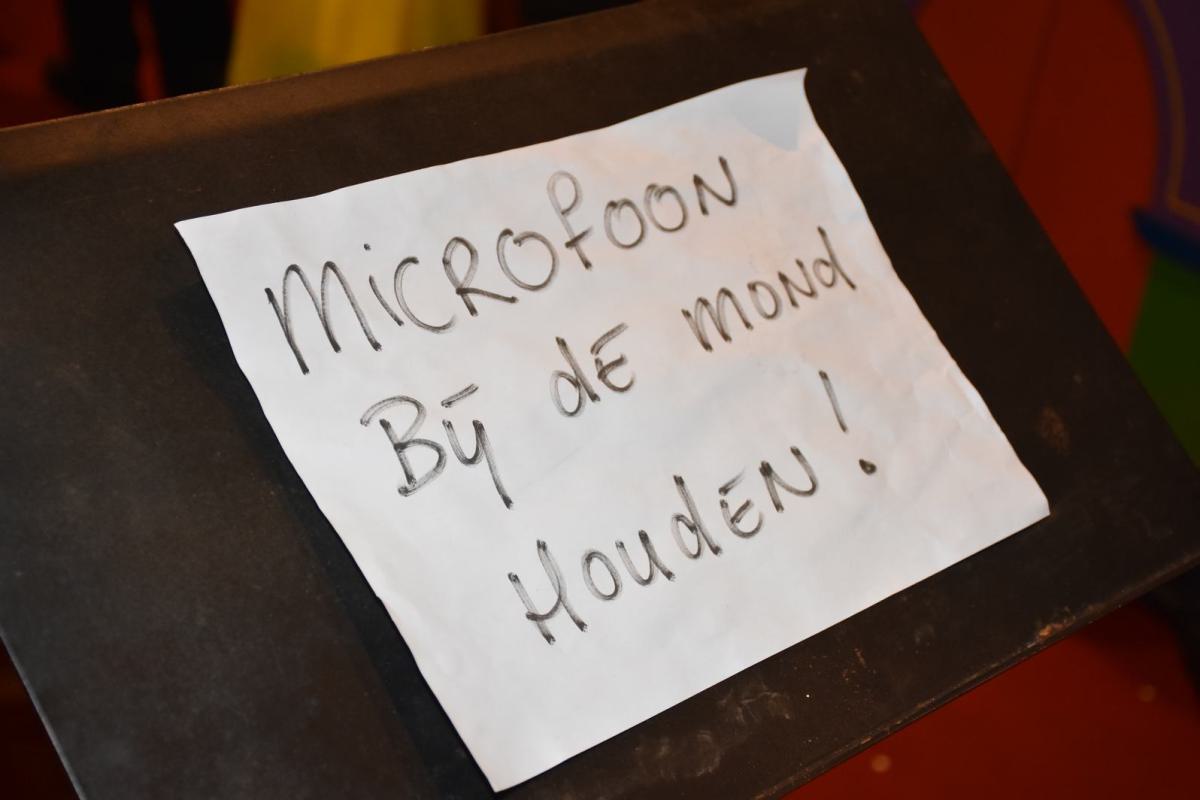 MiCROfOON
Bij dE MONd
HOUdEN!